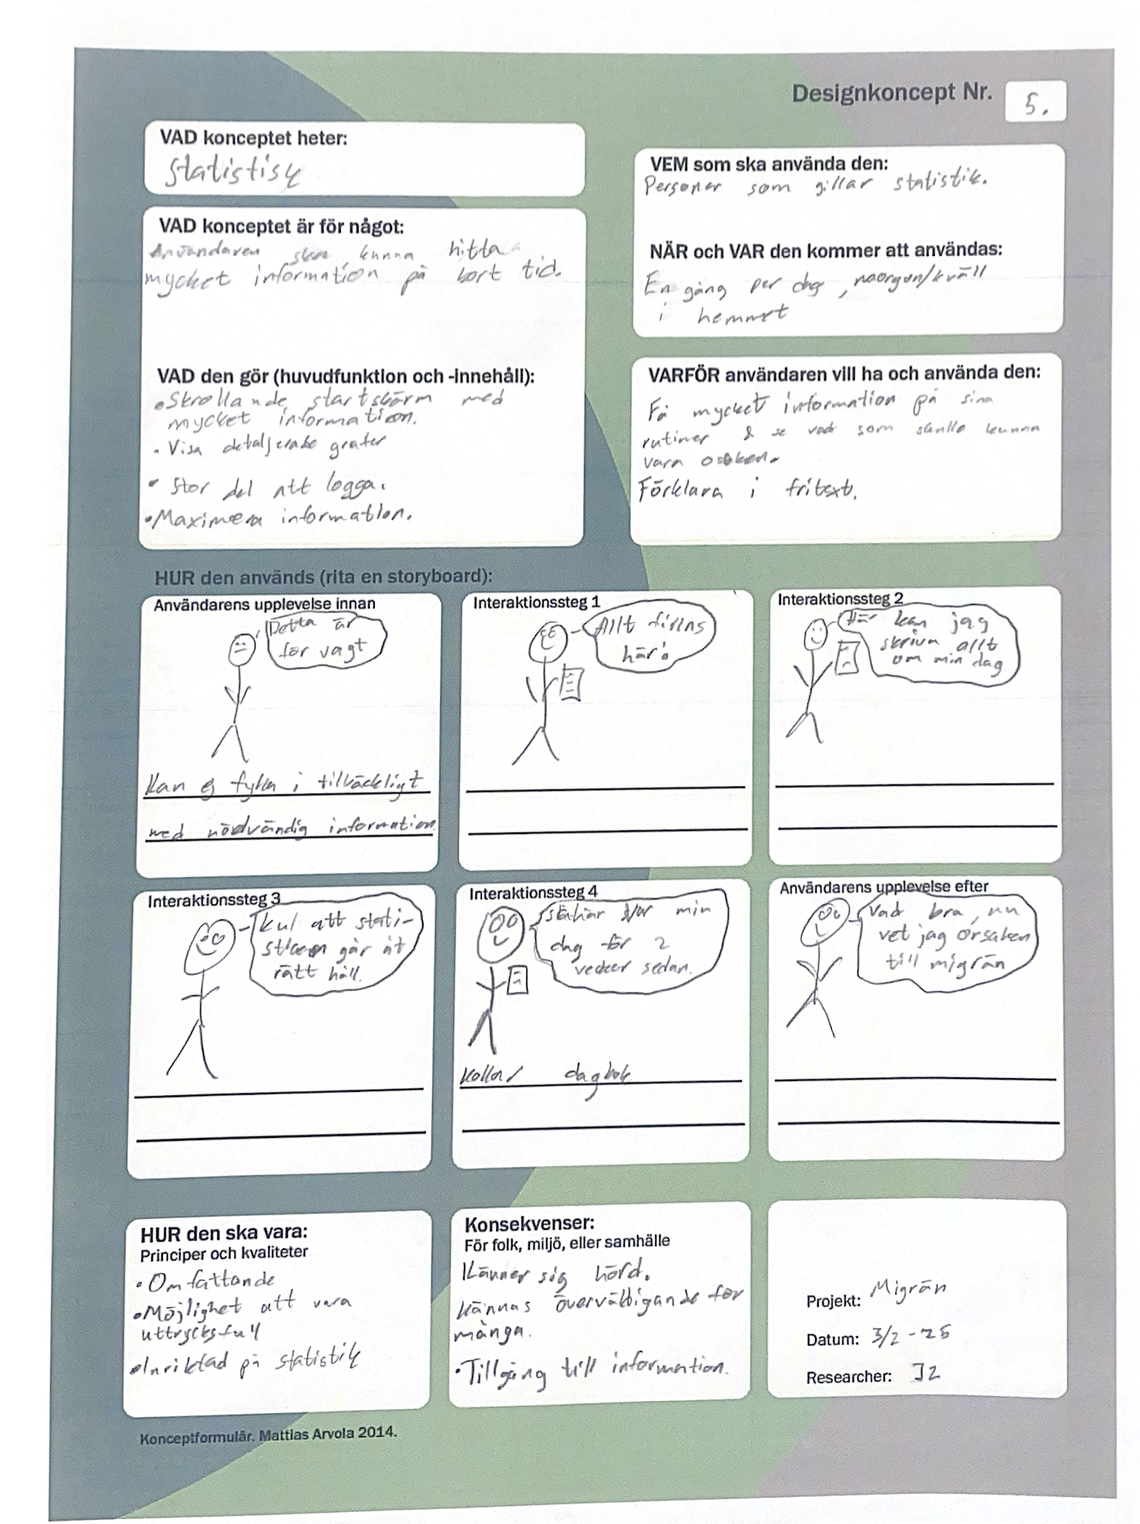 Designkoncept Nr. 5.
VAD konceptet heter:
Statistisk
VAD konceptet är för något:
Användaren ska kunna hitta
mycket information på kort tid.
VAD den gör (huvudfunktion och -innehåll):
• Skrollande startskärm med
mycket information.
• Visa detaljerade grafer
• Stor del att logga.
• Maximera information.
VEM som ska använda den:
Personer som gillar statistik.
NÄR och VAR den kommer att användas:
En gång per dag, morgon/kväll
i hemmet
VARFÖR användaren vill ha och använda den:
Få mycket information på sina
rutiner & se vad som skulle kunna
vara orsaken.
Förklara i fritext.
HUR den används (rita en storyboard):
Användarens upplevelse innan
Detta är
för vagt
Kan ej fylla i tillräckligt
med nödvändig information
Interaktionssteg 1
Allt finns
här!
Interaktionssteg 2
Här kan jag
skriva allt
om min dag
Interaktionssteg 3
kul att stati-
stiken går åt
rätt håll.
Interaktionssteg 4
såhär var min
dag för 2
veckor sedan.
Kollar dagbok
Användarens upplevelse efter
Vad bra, nu
vet jag orsaken
till migrän
HUR den ska vara:
Principer och kvaliteter
• Omfattande
• Möjlighet att vara
uttrycksfull
• Inriktad på statistik
Konsekvenser:
För folk, miljö, eller samhälle
Känner sig hörd.
Kännas överväldigande för
många.
• Tillgång till information.
Projekt: Migrän
Datum: 3/2-25
Researcher: J2
Konceptformulär. Mattias Arvola 2014.